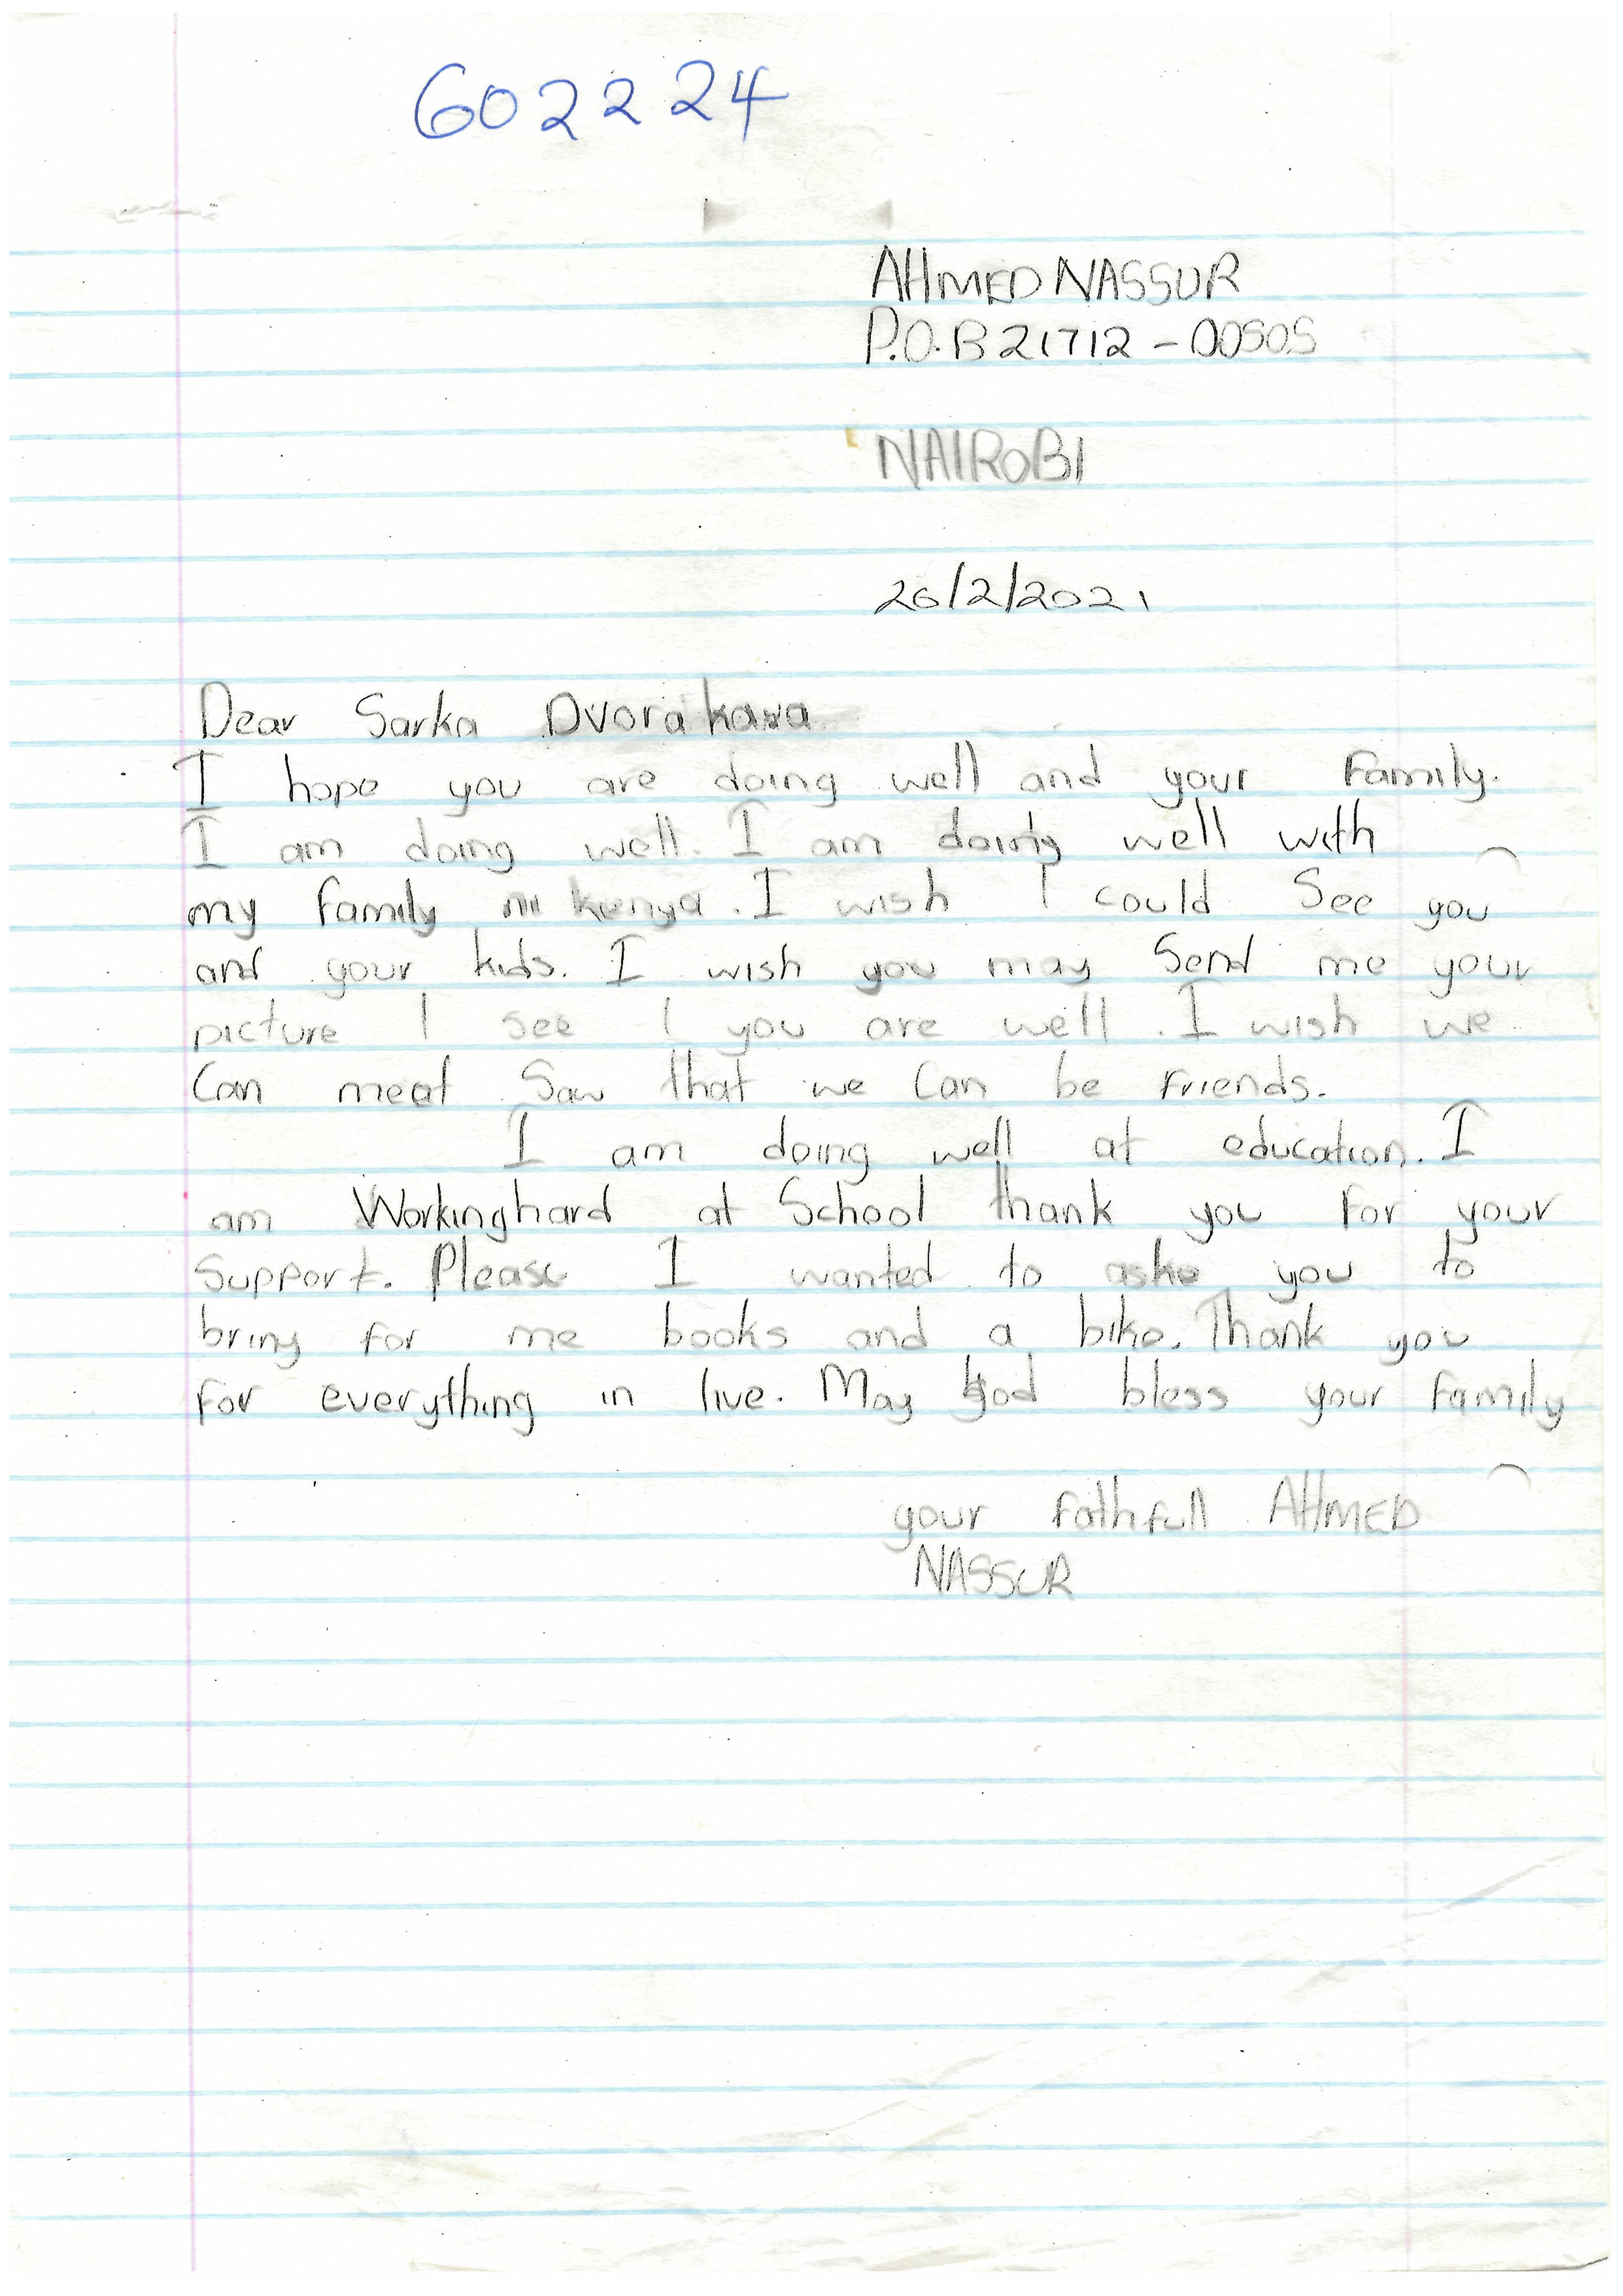 602224
AHMED NASSUR
P.O.B 21712 - 00505
NAIROBI
26/2/2021
Dear Sarka Dvorakava
I hope you are doing well and your Family.
I am doing well. I am doing well with
my family kenya. I wish I could See you
and your kids. I wish you may Send me your
picture I see I you are well. I wish we
Can meat Saw that we Can be Friends.
I am doing well at education. I
am Workinghard at School thank you For your
Support. Please I wanted to aske you to
bring for me books and a bike. Thank you
for everything in live. May God bless your family
your fathfull AHMED
NASSUR